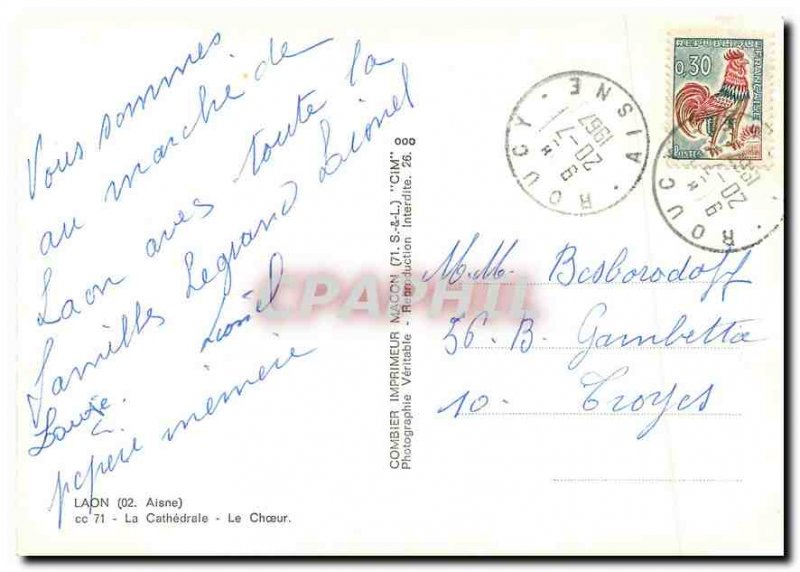 Vous sommes
au marché de
Laon avec toute la
familles Legrand Lionel
Lionel
pepere memere
LAON (02. Aisne)
cc 71 - La Cathédrale - Le Chœur.
COMBIER IMPRIMEUR MACON (71. S.-&-L.) "CIM"
Photographie Véritable - Reproduction Interdite. 26.
CPAPHIL
REPUBLIQUE FRANÇAISE
0,30
POSTES
ROUCY - AISNE
20-7
1967
ROUCY
20
M.M. Besborodoff
36. B. Gambetta
10- Troyes